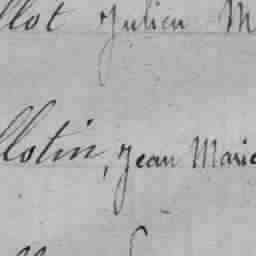 llot Julien M
llotin, Jean Marie